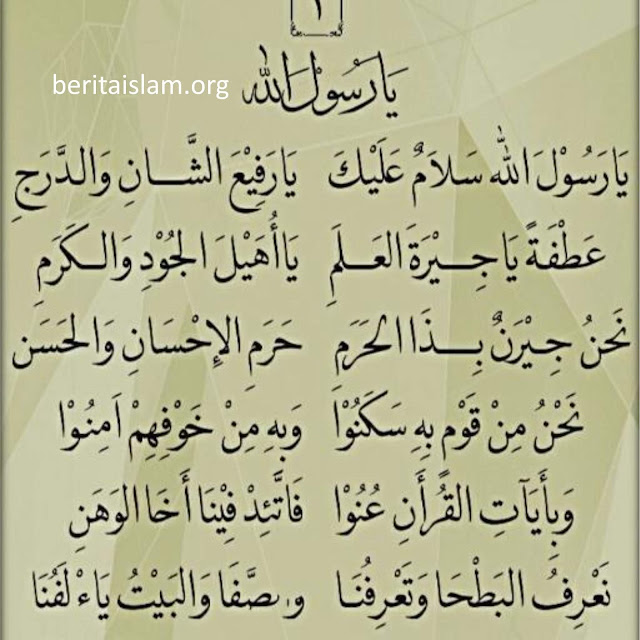 ١
يَا رَسُوْلَ الله
beritaislam.org
يَارَسُوْلَ الله سَلَامٌ عَلَيْكَ يَارَفِيْعَ الشَّانِ وَالدَّرَجِ
عَطْفَةً يَاجِيْرَةَ العَلَمِ يَاأُهَيْلَ الجُوْدِ وَالكَرَمِ
نَحْنُ جِيْرَنٌ بِذَا الحَرَمِ حَرَمِ الإِحْسَانِ وَالحَسَن
نَحْنُ مِنْ قَوْمٍ بِهِ سَكَنُوْا وَبِهِ مِنْ خَوْفِهِمْ اَمِنُوْا
وَبِأَيَآتِ القُرْأَنِ عُنُوْا فَاتَّئِدْ فِيْنَا أَخَا الوَهَنِ
نَعْرِفُ البَطْحَا وَتَعْرِفُنَا وَالصَّفَا وَالبَيْتُ يَاءْلَفُنَا